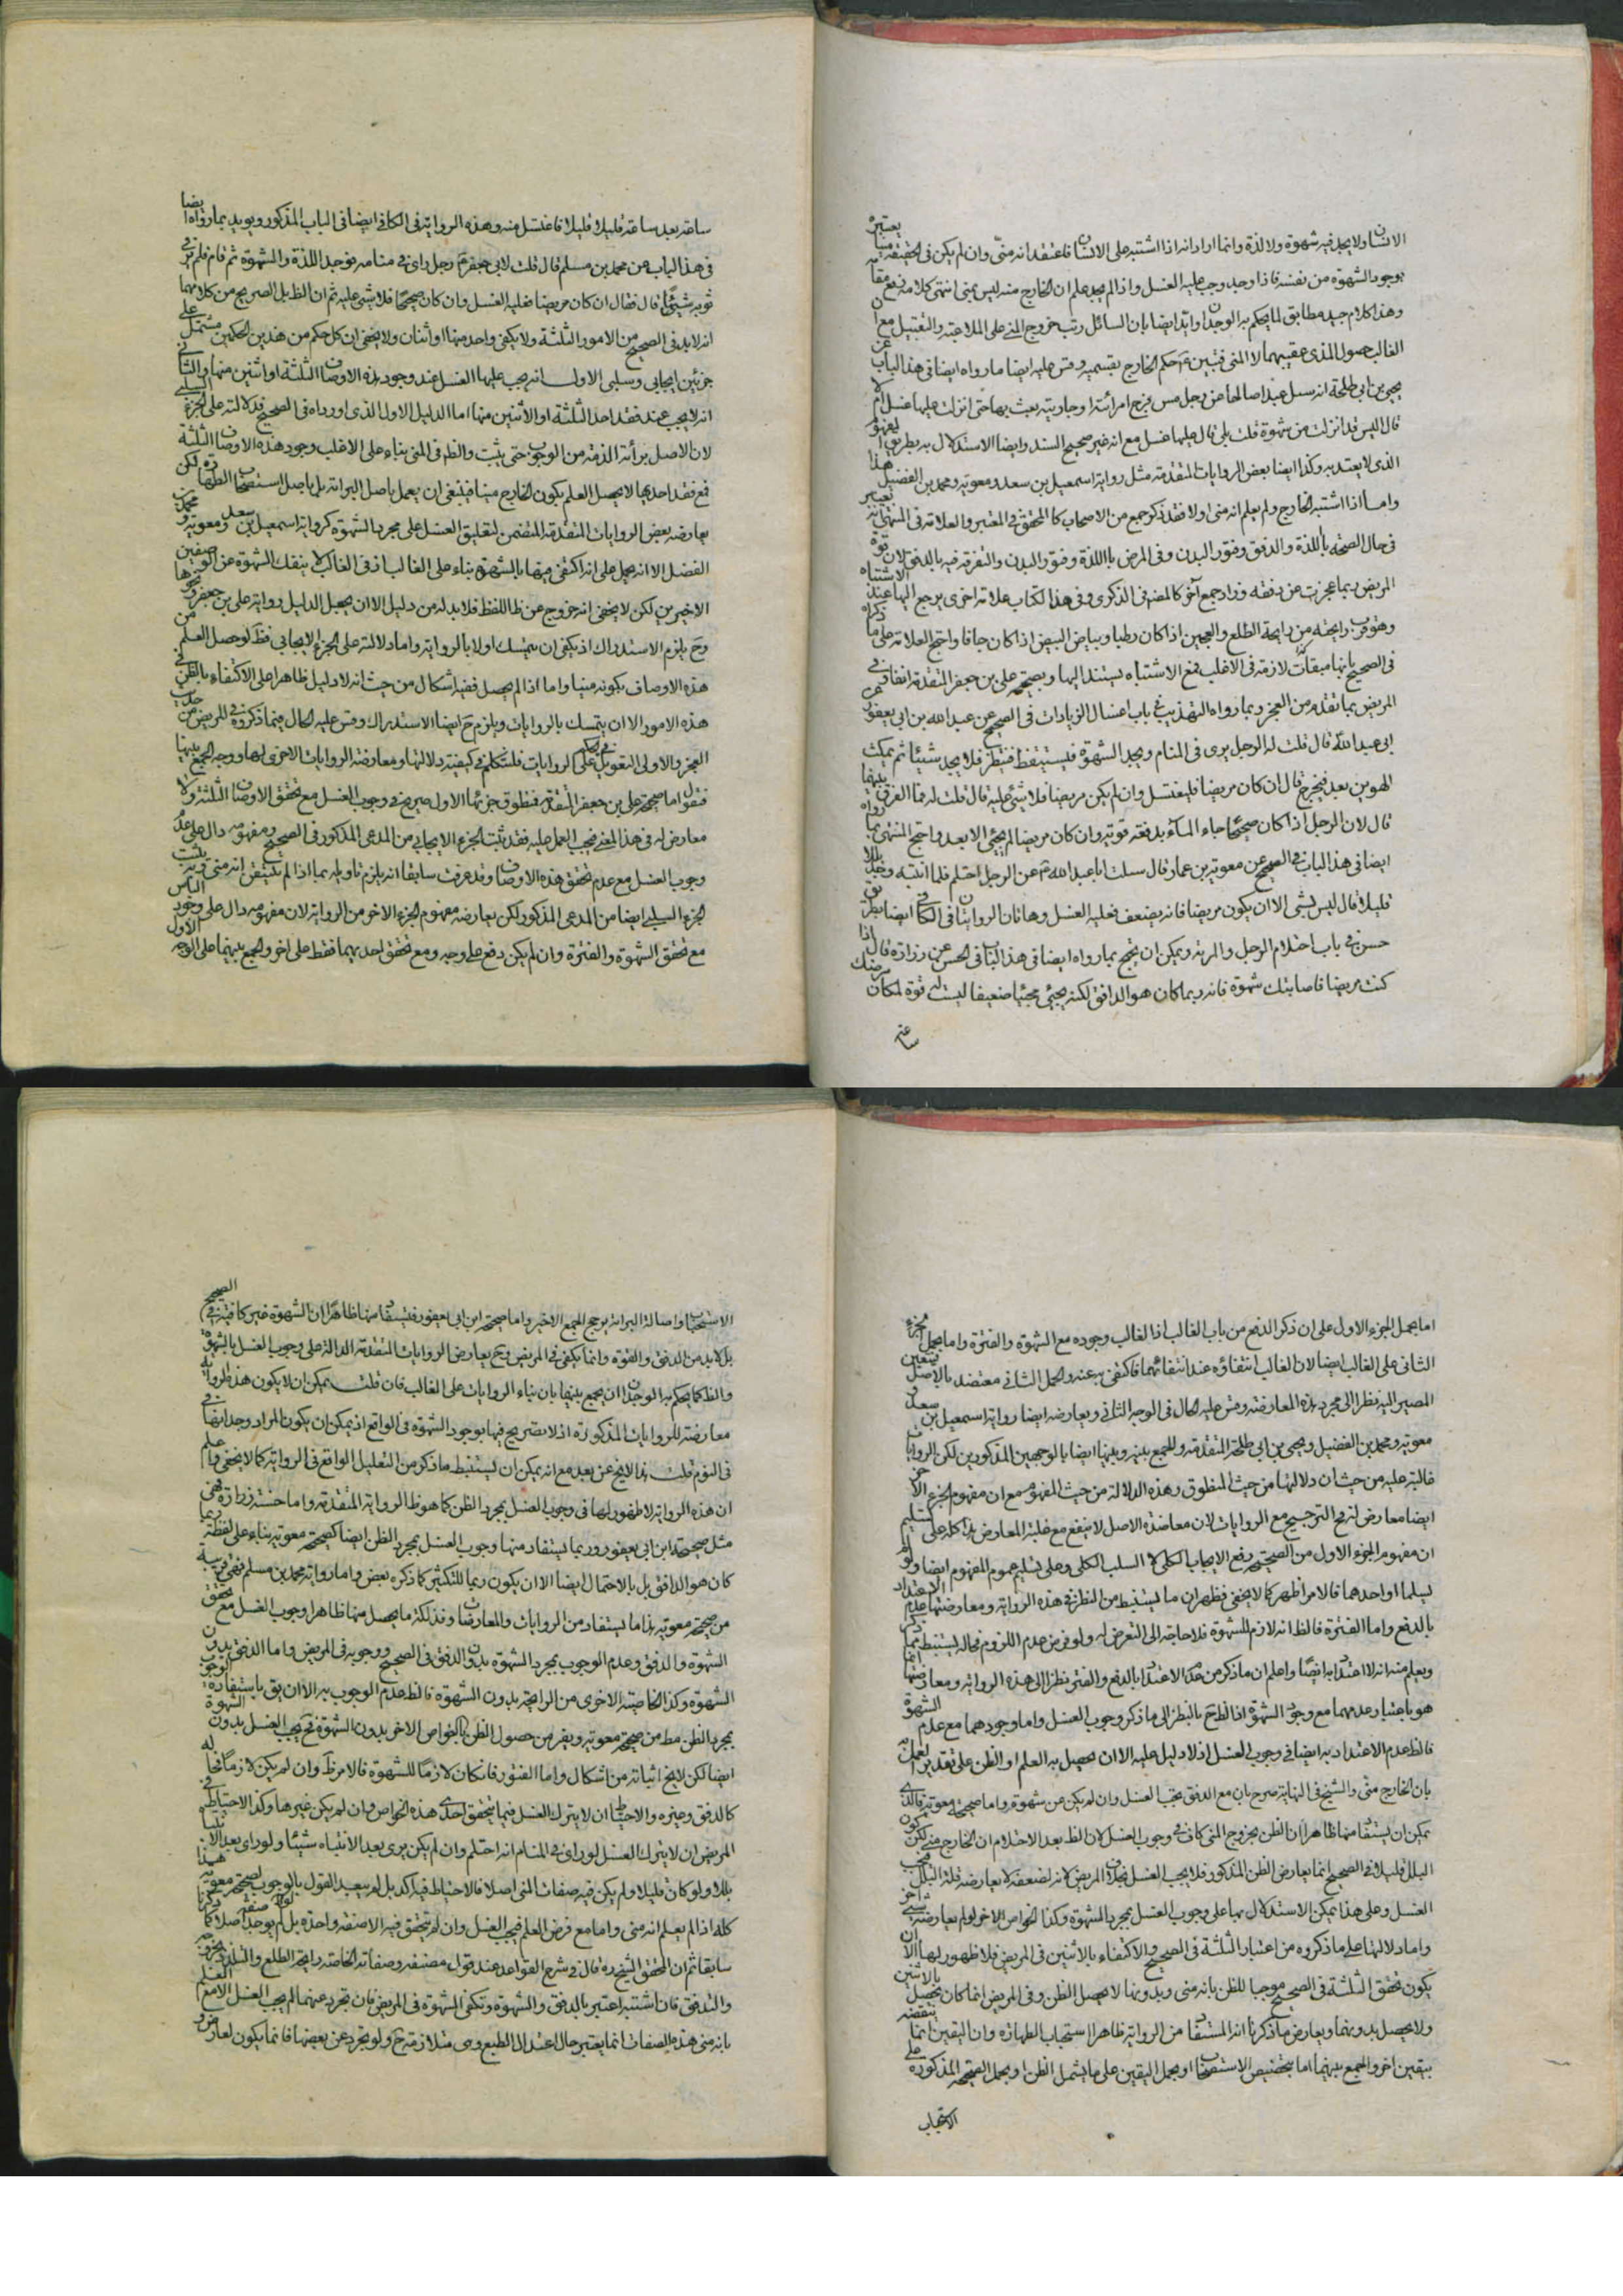 الانسان ولا يجد فيه شهوة ولا لذة وانما اراد انه اذا اشتبه على الانسان فاعتقد انه منى وان لم يكن فى الحقيقة منيا يعتبره
بوجود الشهوة من نفسه فاذا وجد وجب عليه الغسل واذا لم يجد علم ان الخارج منه ليس بمنى انتهى كلامه رفع مقامه
وهذا كلام جيد مطابق لما يحكم به الوجدان وايد ايضا بان السائل رتب خروج المنى على الملاعبة والتقبيل مع ان
الغالب حصول المذى عقيبهما لا المنى فتبين ع حكم الخارج بقسميه وقس عليه ايضا ما رواه ايضا فى هذا الباب عن
يحيى بن ابى طلحة انه سئل عبدا صالحا عن رجل مس فرج امرائته او جاريته يعبث بها حتى انزلت عليها غسل ام لا
قال اليس قد انزلت من شهوة قلت بلى قال عليها غسل مع انه غير صحيح السند وايضا الاستدلال به بطريق المفهوم
الذى لا يعتد به وكذا ايضا بعض الروايات المتقدمة مثل رواية اسمعيل بن سعد ومعوية ومحمد بن الفضيل هذا
واما اذا اشتبه الخارج ولم يعلم انه منى او لا فقد ذكر جمع من الاصحاب كالمحقق فى المعتبر والعلامة فى المنتهى انه يعتبر
فى حال الصحة باللذة والدفق وفتور البدن وفى المرض باللذة وفتور البدن والتفرقة فيه بالدفق لان قوة
المريض ربما عجزت عن دفقه وزاد جمع آخر كالمصنف فى الذكرى وفى هذا الكتاب علامة اخرى يرجع اليها عند الاشتباه
وهو قرب رايحته من رايحة الطلع والعجين اذا كان رطبا وبياض البيض اذا كان جافا واحتج العلامة على ما ذكراه
فى الصحيح بانها صفات لازمة فى الاغلب فمع الاشتباه يستند اليها وبصحيحة على بن جعفر المتقدمة انفا وفى
المريض بما تقدم من العجز وبما رواه التهذيب فى باب اغسال الزيادات فى الصحيح عن عبد الله بن ابى يعفور عن
ابى عبد الله قال قلت له الرجل يرى فى المنام ويجد الشهوة فيستيقظ فينظر فلا يجد شيئا ثم يمكث
الهوين بعد فيخرج قال ان كان مريضا فليغتسل وان لم يكن مريضا فلا شئ عليه قال قلت له فما الفرق بينهما
قال لان الرجل اذا كان صحيحا جاء المآء بدفعة قوية وان كان مريضا لم يجئ الا بعد واحتج المنتهى بما رواه
ايضا فى هذا الباب فى الصحيح عن معوية بن عمار قال سئلت ابا عبد الله ع عن الرجل احتلم فلما انتبه وجد بللا
قليلا قال ليس بشئ الا ان يكون مريضا فانه يضعف فعليه الغسل وهاتان الروايتان فى الكافى ايضا بطريق
حسن فى باب احتلام الرجل والمرئة ويمكن ان يحتج بما رواه ايضا فى هذا الباب فى الحسن عن زرارة قال اذا
كنت مريضا فاصابتك شهوة فانه ربما كان هو الدافق لكنه يجئ مجيئا ضعيفا ليست له قوة لمكان مرضك
ساعة
ساعة بعد ساعة قليلا قليلا فاغتسل منه وهذه الرواية فى الكافى ايضا فى الباب المذكور ويويد بما رواه ايضا
فى هذا الباب عن محمد بن مسلم قال قلت لابى جعفر ع رجل راى فى منامه فوجد اللذة والشهوة ثم قام فلم ير فى
ثوبه شيئا قال فقال ان كان مريضا فعليه الغسل وان كان صحيحا فلا شئ عليه ثم ان الظ بل الصريح من كلامهما
انه لا بد فى الصحيح من الامور الثلثة ولا يكفى واحد منها او اثنان ولا يخفى ان كل حكم من هذين الحكمين مشتمل على
جزئين ايجابى وسلبى الاول انه يجب عليها الغسل عند وجود هذه الاوصاف الثلثة او اثنين منها والثانى
انه لا يجب عند فقد احد الثلثة او الاثنين منها اما الدليل الاول الذى اورداه فى الصحيح فدلالته على الجزء السلبى
لان الاصل برائة الذمة من الوجوب حتى يثبت والظ فى المنى بناء على الاغلب وجود هذه الاوصاف الثلثة
فمع فقد احدها لا يحصل العلم بكون الخارج منيا فينبغى ان يعمل باصل البرائة بل باصل استصحاب الطهارة لكن
يعارضه بعض الروايات المتقدمة المتضمن لتعليق الغسل على مجرد الشهوة كرواية اسمعيل بن سعد ومعوية ومحمد بن
الفضل الا انه يحمل على انه اكتفى فيها بالشهوة بناء على الغالب اذ فى الغالب لا ينفك الشهوة عن الوصفين
الاخيرين لكن لا يخفى انه خروج عن ظ اللفظ فلا بد له من دليل الا ان يجعل الدليل رواية على بن جعفر ونحوها
وح يلزم الاستدراك اذ يكفى ان يتمسك اولا بالرواية واما دلالته على الجزء الايجابى فظ لو حصل العلم من
هذه الاوصاف بكونه منيا واما اذا لم يحصل ففيه اشكال من حيث انه لا دليل ظاهرا على الاكتفاء بالظن فى
هذه الامور الا ان يتمسك بالروايات ويلزم ح ايضا الاستدراك وقس عليه الحال فيما ذكروه فى المريض من حديث
العجز والاولى التعويل فى الحكم على الروايات فلنتكلم فى كيفية دلالتها ومعارضة الروايات الاخرى لها ووجه الجمع بينها
فنقول اما صحيحة على بن جعفر المتقدمة فمنطوق جزئها الاول صريح فى وجوب الغسل مع تحقق الاوصاف الثلثة ولا
معارض له فى هذا المعنى فيجب العمل عليه فقد ثبت الجزء الايجابى من المدعى المذكور فى الصحيح ومفهومه دال على عدم
وجوب الغسل مع عدم تحقق هذه الاوصاف وقد عرفت سابقا انه يلزم تاويله بما اذا لم يتيقن انه منى وبه يثبت
الجزء السلبى ايضا من المدعى المذكور لكن يعارضه مفهوم الجزء الاخر من الرواية لان مفهومه دال على وجود الباس
مع تحقق الشهوة والفترة وان لم يكن دفع على وجه ومع تحقق احديهما فقط على اخر والجمع بينهما على الوجه الاول
اما يحمل الجزء الاول على ان ذكر الدفع من باب الغالب اذ الغالب وجوده مع الشهوة والفترة واما يحمل الجزء
الثانى على الغالب ايضا لان الغالب انتفاؤه عند انتفائهما فاكتفى به عنه والحمل الثانى معتضد بالاصل فيتعين
المصير اليه نظرا الى مجرد هذه المعارضة وقس عليه الحال فى الوجه الثانى ويعارضه ايضا رواية اسمعيل بن سعد و
معوية ومحمد بن الفضيل ويحيى بن ابى طلحة المتقدمة وللجمع بينه وبينها ايضا بالوجهين المذكورين لكن الروايات
غالبة عليه من حيث ان دلالتها من حيث المنطوق وهذه الدلالة من حيث المفهوم مع ان مفهوم الجزء الاخر
ايضا معارض له فح الترجيح مع الروايات لان معاضدة الاصل لا ينفع مع غلبة المعارض هذا كله على تسليم
ان مفهوم الجزء الاول من الصحيحة رفع الايجاب الكلى لا السلب الكلى وعلى تسليم عموم المفهوم ايضا ولو لم
يسلما او احدهما فالامر اظهر كما لا يخفى فظهر ان ما يستنبط من النظر فى هذه الرواية ومعارضتها عدم الاعتداد
بالدفع واما الفترة فالظ انه لازم للشهوة فلا حاجة الى التعرض له ولو فرض عدم اللزوم فحاله يستنبط مما ذكر
ويعلم منه انه لا اعتداد به ايضا واعلم ان ما ذكر من عدم الاعتداد بالدفع والفتر نظرا الى هذه الرواية ومعارضتها انما
هو باعتبار عدمهما مع وجود الشهوة اذ الظ ح بالنظر الى ما ذكر وجوب الغسل واما وجودهما مع عدم الشهوة
فالظ عدم الاعتداد به ايضا فى وجوب الغسل اذ لا دليل عليه الا ان يحصل به العلم او الظن على تقدير العمل به
بان الخارج منى والشيخ فى النهاية صرح بان مع الدفق يجب الغسل وان لم يكن عن شهوة واما صحيحة معوية فالذى
يمكن ان يستفاد منها ظاهرا ان الظن بخروج المنى كاف فى وجوب الغسل لان الظ بعد الاحتلام ان الخارج منى لكن يكون
البلل قليلا فى الصحيح انما يعارض الظن المذكور فلا يجب الغسل بخلاف المريض لانه لضعفه لا يعارضه قلة البلل فيجب
الغسل وعلى هذا يمكن الاستدلال بها على وجوب الغسل بمجرد الشهوة وكذا الخواص الاخر لو لم يعارضه شئ اخر
واما دلالتها على ما ذكروه من اعتبار الثلثة فى الصحيح والاكتفاء بالاثنين فى المريض فلا ظهور لها الا ان
يكون تحقق الثلثة فى الصحيح موجبا للظن بانه منى وبدونها لا يحصل الظن وفى المريض انما كان يحصل بالاثنين
ولا يحصل بدونهما ويعارض ما ذكرنا انه المستفاد من الرواية ظاهرا استصحاب الطهارة وان اليقين انما ينقضه
بيقين اخر والجمع بينهما اما بتخصيص الاستصحاب او بحمل اليقين على ما يشمل الظن او بحمل الصحيحة المذكورة على
الاستحباب
الاستحباب واصالة البرائة يرجح الجمع الاخير واما صحيحة ابن ابى يعفور فيستفاد منها ظاهرا ان الشهوة غير كافية فى الصحيح
بل لا بد من الدفق والقوة وانما يكفى فى المريض وح يعارض الروايات المتقدمة الدالة على وجوب الغسل بالشهوة
والظ كما يحكم به الوجدان ان يجمع بينهما بان بناء الروايات على الغالب فان قلت يمكن ان لا يكون هذه الرواية
معارضة للروايات المذكورة اذ لا تصريح فيها بوجود الشهوة فى الواقع اذ يمكن ان يكون المراد وجدانها فى
فى النوم قلت هذا لا يخ عن بعد مع انه يمكن ان يستنبط ما ذكر من التعليل الواقع فى الرواية كما لا يخفى واعلم
ان هذه الرواية لا ظهور لها فى وجوب الغسل بمجرد الظن كما هو ظ الرواية المتقدمة واما حسنة زرارة فهى
مثل صحيحة ابن ابى يعفور وربما يستفاد منها وجوب الغسل بمجرد الظن ايضا كصحيحة معوية بناء على لفظة ربما
كان هو الدافق بل بالاحتمال ايضا الا ان يكون ربما للتكثير كما ذكره بعض واما رواية محمد بن مسلم فهى قريبة
من صحيحة معوية هذا ما يستفاد من الروايات والمعارضات وفذلكة ما يحصل منها ظاهرا وجوب الغسل مع تحقق
الشهوة والدفق وعدم الوجوب بمجرد الشهوة بدون الدفق فى الصحيح ووجوبه فى المريض واما الدفق بدون
الشهوة وكذا الخاصية الاخرى من الرايحة بدون الشهوة فالظ عدم الوجوب به الا ان يق باستفادة الوجوب
بمجرد الظن مط من صحيحة معوية ويفرض حصول الظن بالخواص الاخر بدون الشهوة فح يجب الغسل بدون الشهوة
ايضا لكن لا يخ اثباته من اشكال واما الفتور فان كان لازما للشهوة فالامر ظ وان لم يكن لازما لها فحاله
كالدفق وغيره والاحتياط ان لا يترك الغسل فيما يتحقق احدى هذه الخواص وان لم يكن غيرها وكذا الاحتياط فى
المريض ان لا يترك الغسل لو راى فى المنام انه احتلم وان لم يكن يرى بعد الانتباه شيئا ولو راى بعد الانتباه
بللا ولو كان قليلا ولم يكن فيه صفات المنى اصلا فالاحتياط فيه اكد بل لم يبعد القول بالوجوب لصحيحة معوية هذا
كله اذا لم يعلم انه منى واما مع فرض العلم فيجب الغسل وان لم يتحقق فيه الا صفة واحدة بل لم يوجد اصلا كما ذكرنا
سابقا ثم ان المحقق الشيخ ره قال فى شرح القواعد عند قول مصنفه وصفاته الخاصة رايحة الطلع والتلذذ بخروجه
والتدفق فان اشتبه اعتبر بالدفق والشهوة وتكفى الشهوة فى المريض فان تجرد عنهما لم يجب الغسل الا مع العلم
بانه منى هذه الصفات انما يعتبر حال اعتدال الطبع وهى متلازمة ح ولو تجرد عن بعضها فانما يكون لعارض و